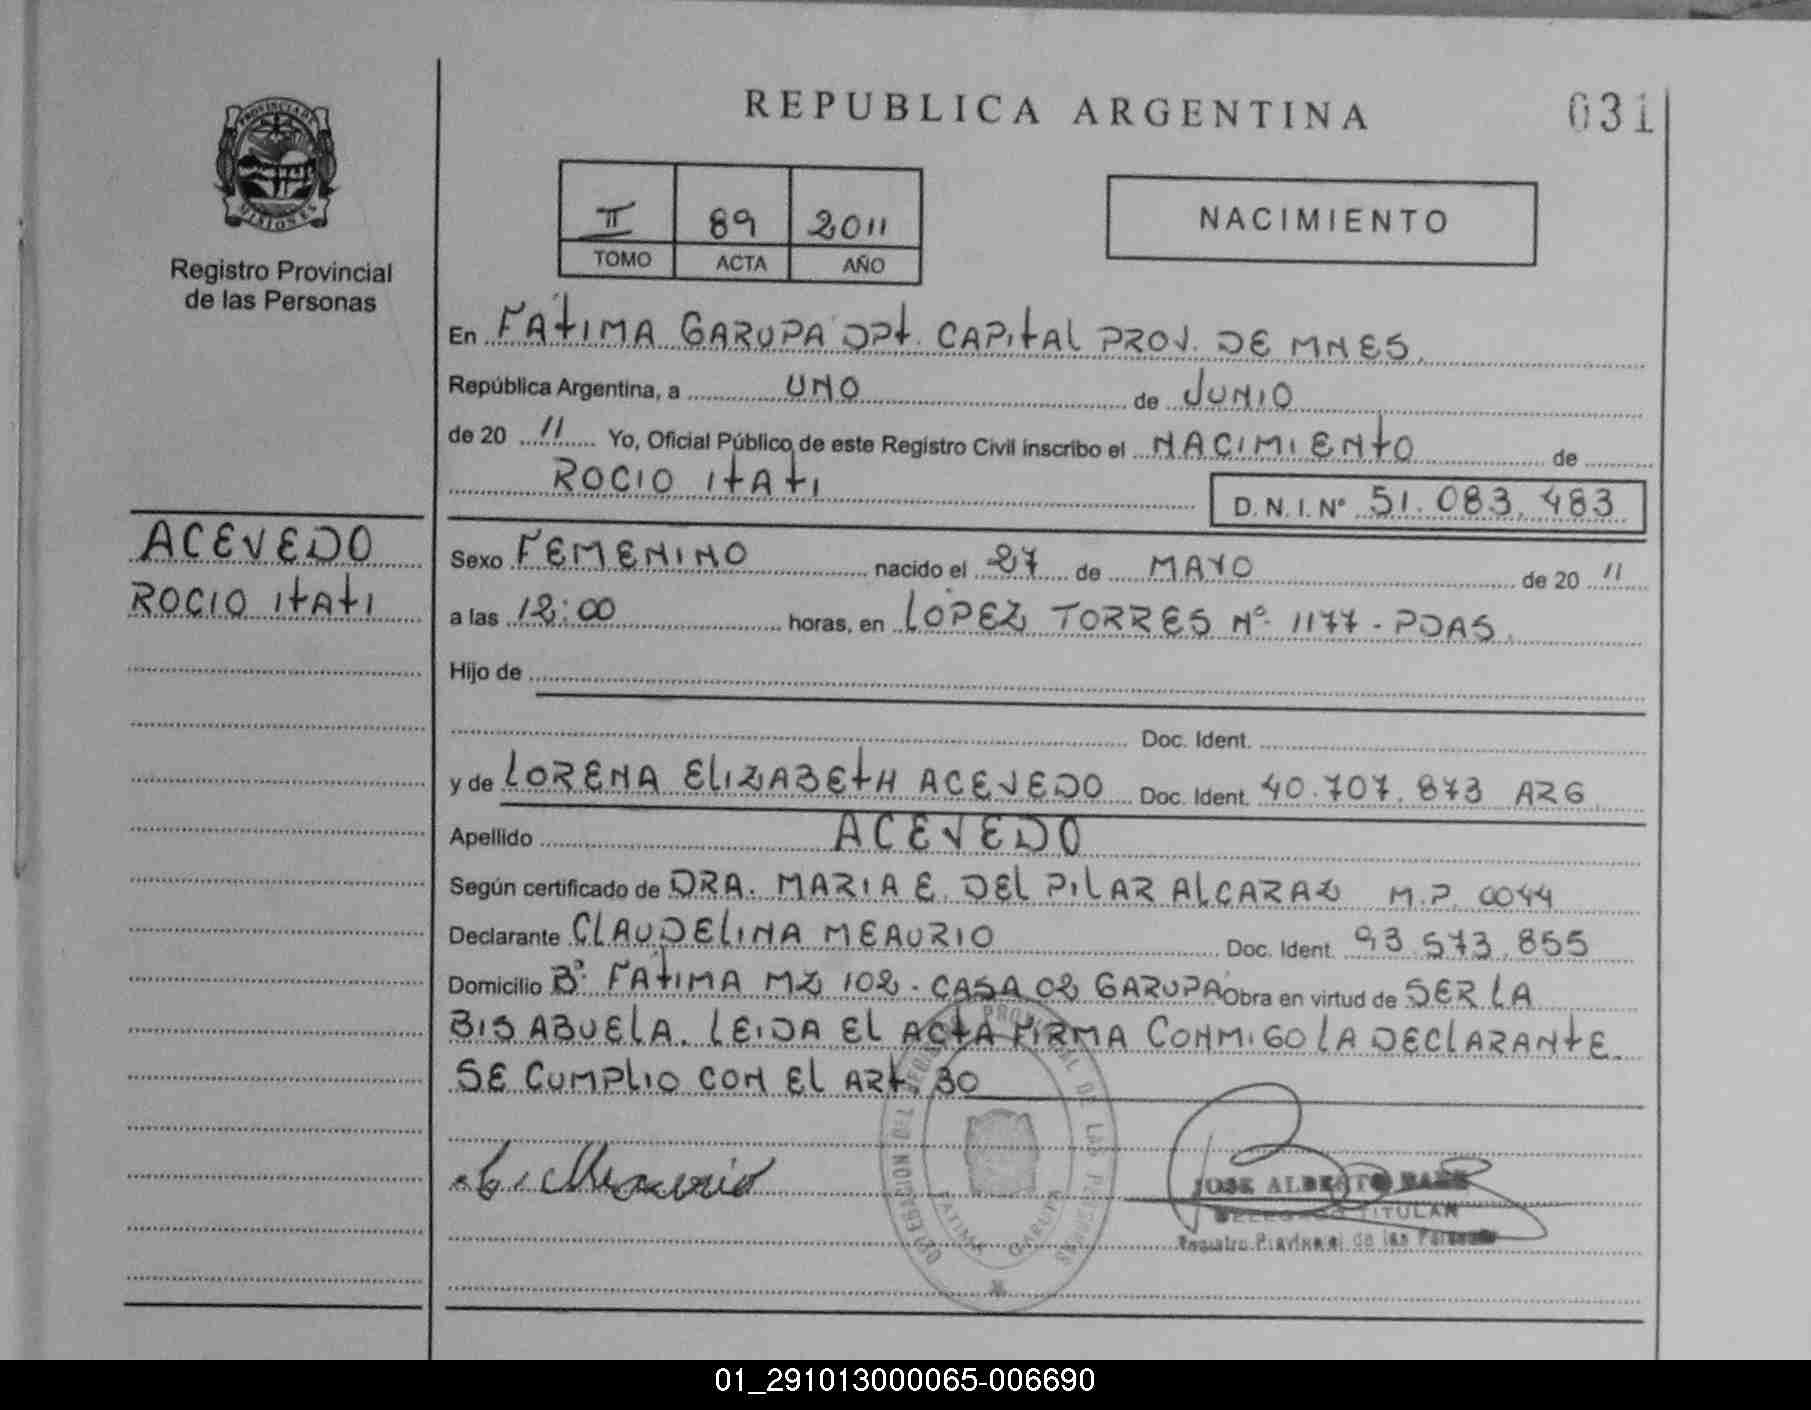 REPUBLICA ARGENTINA
031
PROVINCIA DE MISIONES
Registro Provincial
de las Personas
II 89 2011
TOMO ACTA AÑO
NACIMIENTO
En FATIMA GARUPA DPt. CAPITAL PROV. DE MNES.
República Argentina, a UNO de JUNIO
de 20 11 Yo, Oficial Público de este Registro Civil inscribo el NACIMIENTO de
ROCIO ITATI D.N.I. Nº 51.083.483
ACEVEDO
ROCIO ITATI
Sexo FEMENINO nacido el 27 de MAYO de 20 11
a las 12:00 horas, en LOPEZ TORRES Nº 1177 - PDAS.
Hijo de
Doc. Ident.
y de LORENA ELIZABETH ACEVEDO Doc. Ident. 40.707.873 ARG
Apellido ACEVEDO
Según certificado de DRA. MARIA E. DEL PILAR ALCARAZ M.P. 0044
Declarante CLAUDELINA MEAURIO Doc. Ident. 93.573.855
Domicilio Bº FATIMA MZ 102 - CASA 02 GARUPA Obra en virtud de SER LA
BISABUELA. LEIDA EL ACTA FIRMA CONMIGO LA DECLARANTE.
SE CUMPLIO CON EL ART. 30
C. Meaurio
JOSE ALBERTO
DELEGADO TITULAR
Registro Provincial de las Personas
FATIMA GARUPA
01_291013000065-006690